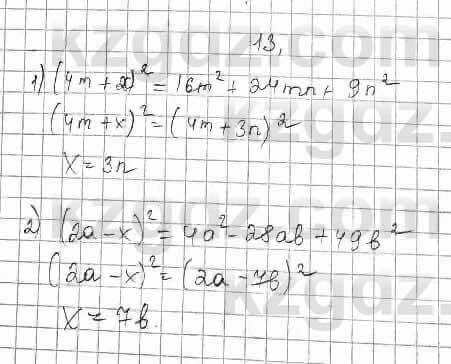 13.
1) (4m + x)² = 16m² + 24mn + 9n²
(4m + x)² = (4m + 3n)²
x = 3n
2) (2a - x)² = 4a² - 28ab + 49b²
(2a - x)² = (2a - 7b)²
x = 7b.
kzgdz.com